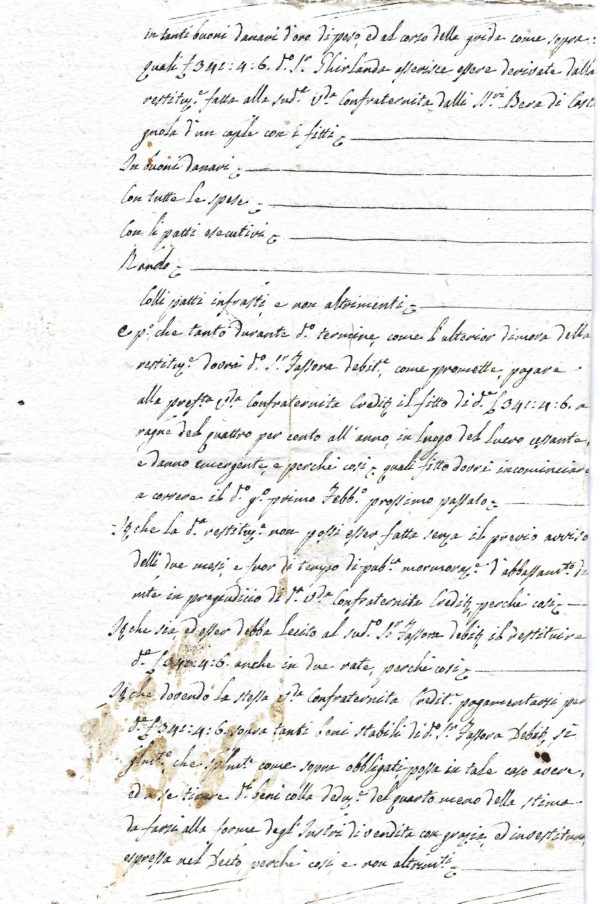 in tanti buoni danari d'oro di peso, ed al corzo della grida come sopra:
quali £ 341:4:6. d.º S.r Ghirlanda asserisce essere derivate dalla
restituz.e fatta alla sud.a V.da Confraternita dalli SS.ri Bera di Cast
gnola d'un cap.le con i fitti
In buoni danari
Con tutte le spese
Con li patti esecutivi
Colli patti infrasti, e non altrimenti
e p.º che tanto durante d.º termine, come l'ulterior dimora della
restituz.e dovrà d.º S.r Fassora debit.e come promette, pagare
alla pref.ta V.da Confraternita Credit. il fitto di d.e £ 341:4:6. a
ragne del quattro per cento all'anno, in luogo del lucro cessante,
e danno emergente, e perchè così, quali fitto dovrà incominciare
a correre il d.º g.º primo Febb.º prossimo passato
It. che la d.a restituz.e non possi esser fatta senza il previo avviso
delli due mesi, e fuor di tempo di pub.ca mormoraz.e d'abbassam.to di
in pregiudicio di d.a V.da Confraternita Credit. perchè così
It. che sia, ed esser debba lecito al sud.º S.r Fassora debit. il destituire
d.e £ 341:4:6. anche in due rate, perchè così
It. che dovendo la stessa V.da Confraternita Credit.e pagamentarsi per
d.e £ 341:4:6. sopra tanti beni stabili di d.º S.r Fassora Debit. sì
che come sopra obbligati, possa in tale caso avere,
ed a se tenere d.i beni colla deduz.e del quarto meno della stima
da farsi alla forma degl'Instri di vendita con grazia, ed investitura
espressa nel perchè così, e non altrim.ti